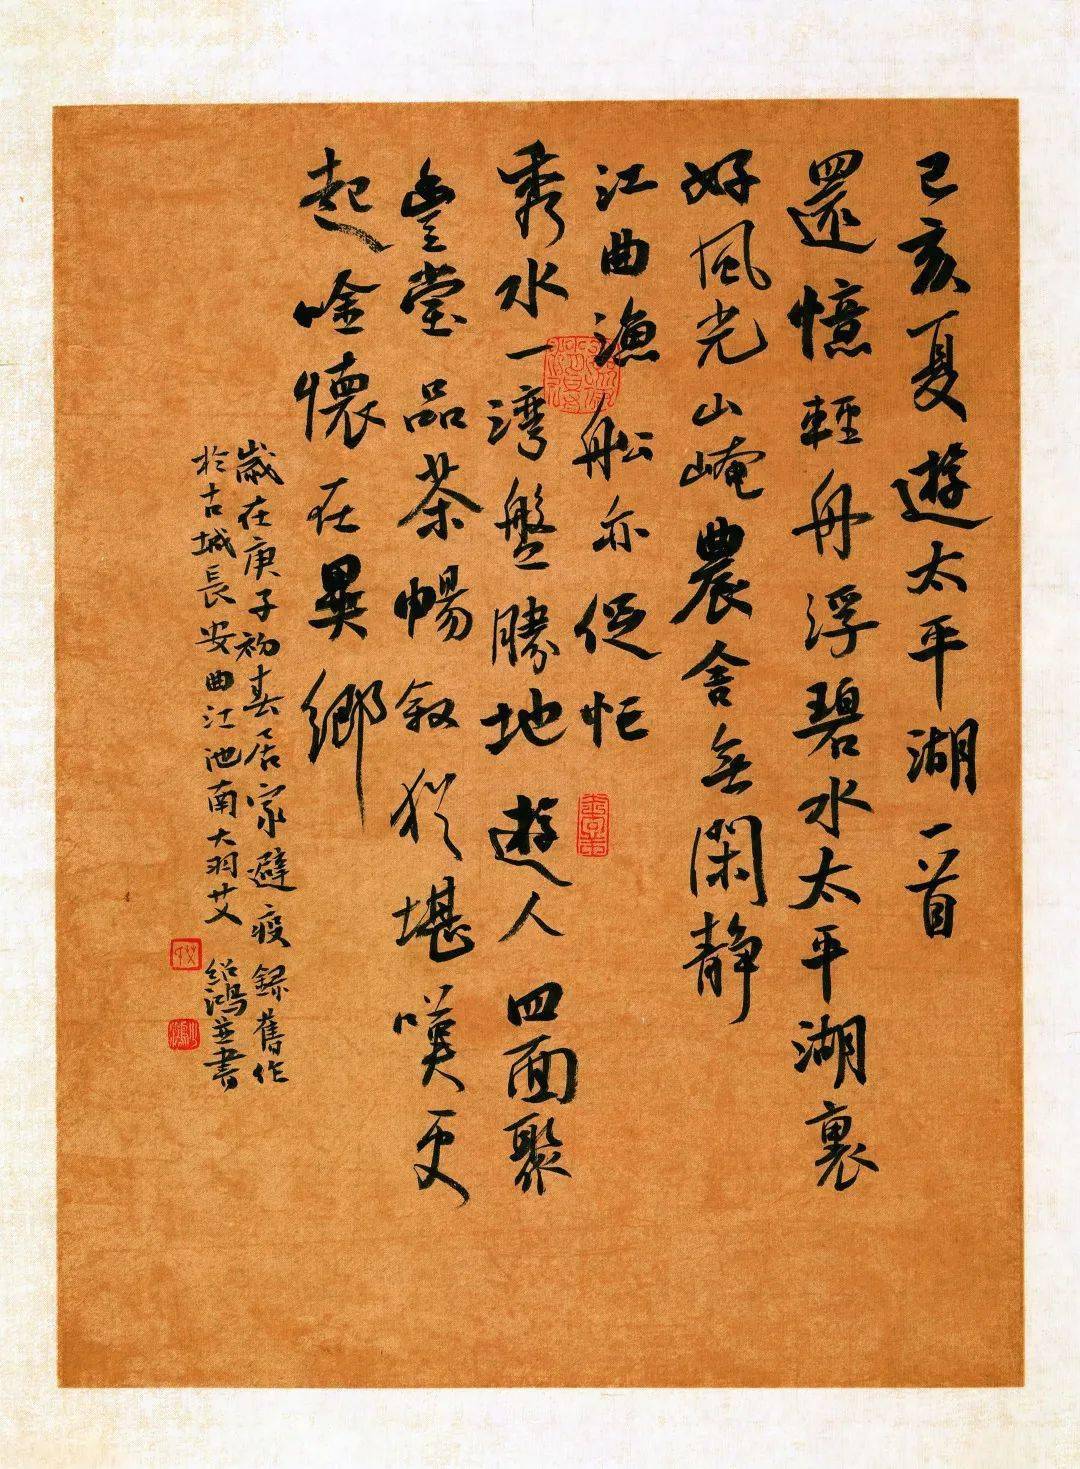 己亥夏遊太平湖一首
還憶輕舟浮碧水太平湖裏
好風光山崦農舍無閑静
江曲漁舩亦促忙
秀水一湾盤勝地遊人四面聚
壹堂品茶暢叙猶堪嘆更
起唫懷在異鄉
歲在庚子初春居家避疫録舊作
於古城長安曲江池南大羽艾紹鴻並書